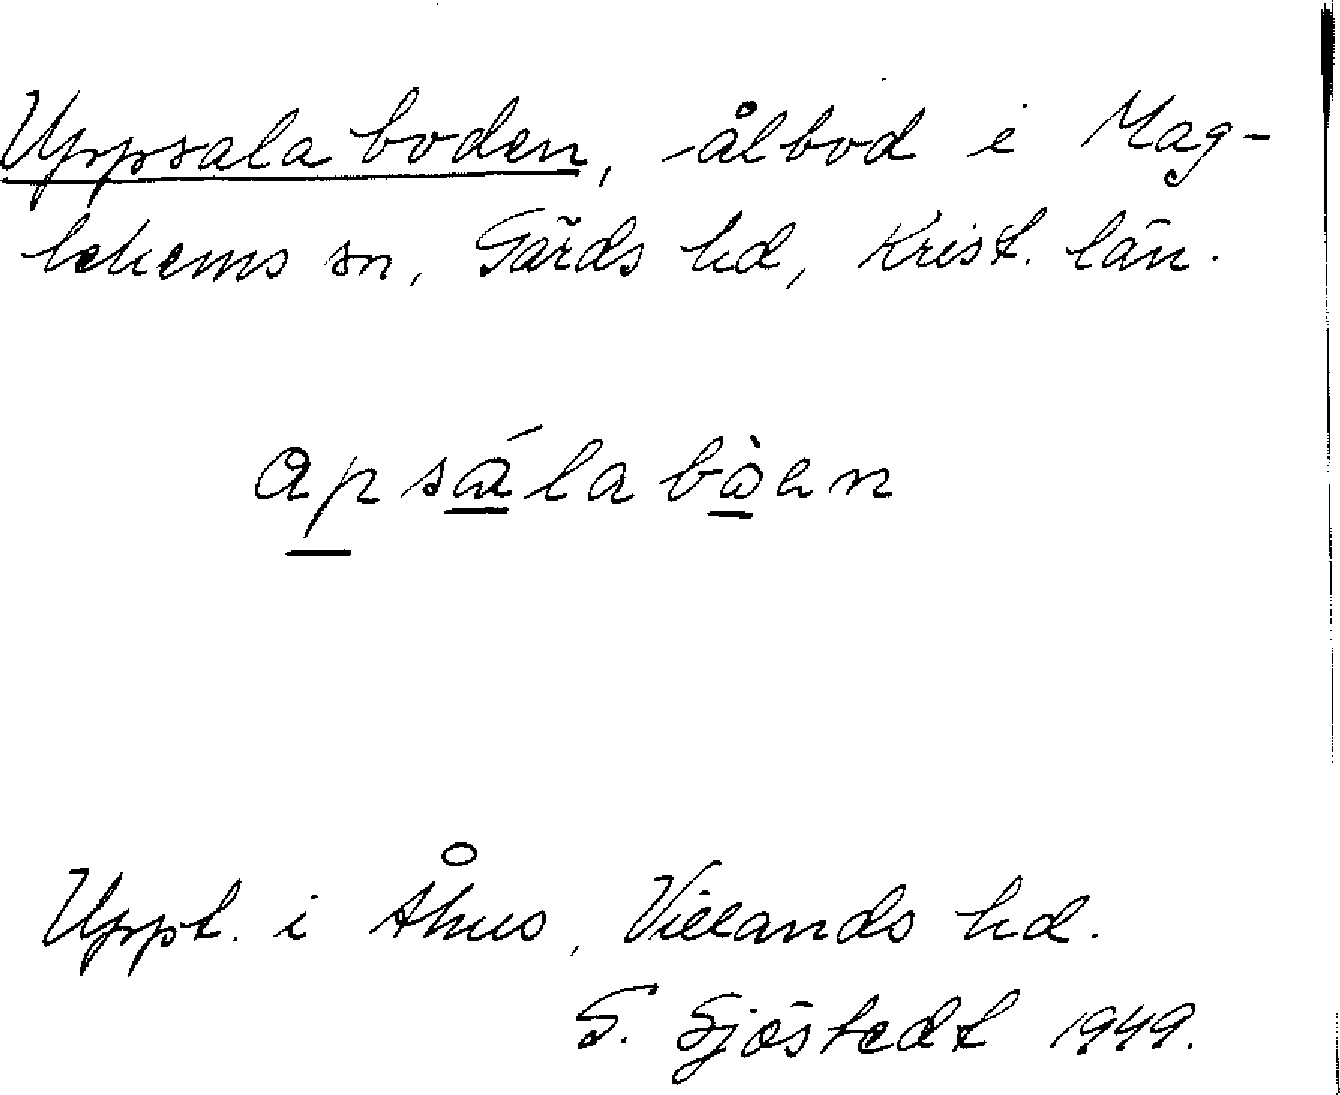 Uppsala boden, ålbod i Mag-
lehems sn, Gärds hd, Krist. län.
apsálabòen
Uppt. i Åhus, Villands hd.
S. Sjöstedt 1949.